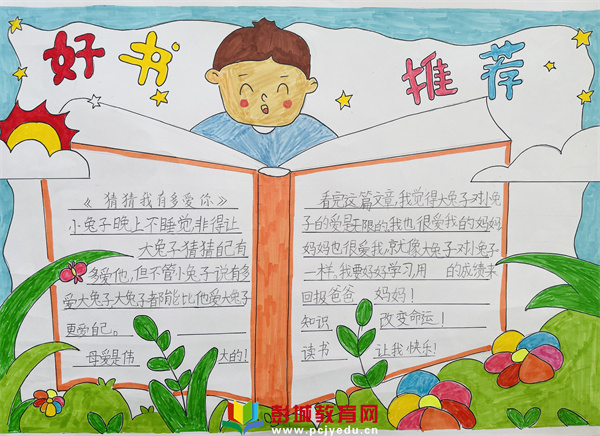 好书
推荐
《猜猜我有多爱你》
小兔子晚上不睡觉非得让
大兔子猜猜自己有
多爱他,但不管小兔子说有多
爱大兔子大兔子都能比他爱大兔子
更爱自己。
母爱是伟 大的!
看完这篇文章,我觉得大兔子对小兔
子的爱是无限的我也很爱我的妈妈
妈妈也很爱我,就像大兔子对小兔子
一样,我要好好学习,用 的成绩来
回报爸爸 妈妈!
知识 改变命运!
读书 让我快乐!
彭城教育网
www.pcjyedu.cn